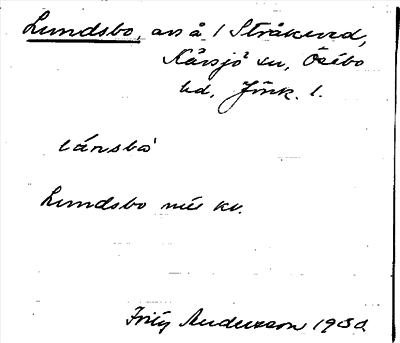 Lundsbo, avs å 1 Stråkved,
Kävsjö sn, Östbo
hd, Jönk. l.
lánsbò
Lundsbo nils kv.
Fritz Andersson 1930